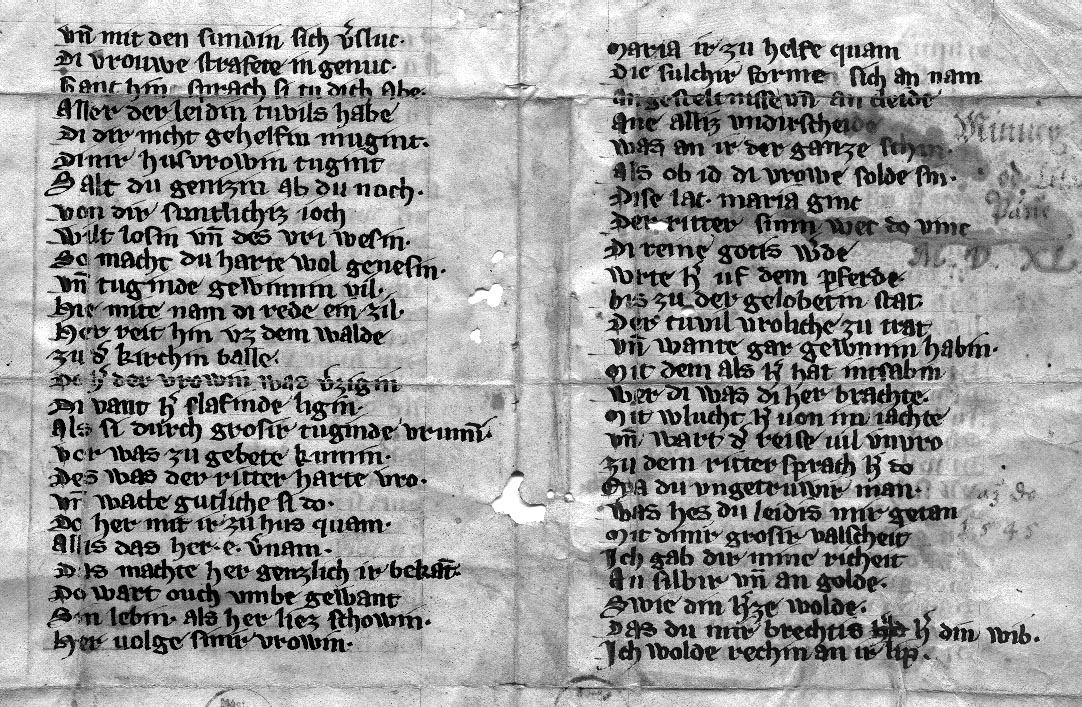 vn̄ mit den sundin sich v̓sluc·
Di vrouwe strafete in genuc·
Ganc hin sprach si tu dich abe·
Aller der leidin tuvils habe
Di dir nicht gehelfin mugint·
Dinir husvrowin tugint
Salt du genizin ab du noch·
von dir suntlichiz ioch
wilt losin vn̄ des vri wesin·
So macht du harte wol genesin·
vn̄ tuginde gewinnin vil·
Hie mite nam di rede ein zil·
Her reit hin vz dem walde
zu d̓ kirchin balde·
Do h̓ der vrowin was v̓zigin
Di vant h̓ slafinde ligin·
Als si durch grosir tuginde vrumin̄·
vor was zu gebete kumin·
Des was der ritter harte vro·
vn̄ wacte gutliche si do·
Do her mit ir zu hus quam·
Allis das her·e·v̓nam·
Das machte her genzlich ir bekāt·
Do wart ouch vmbe gewant
Sin lebin· als her liez schowin·
Her volge sinir vrowin·
maria ir zu helfe quam
Die sulchir forme sich an nam
An gesteltnisse vn̄ an cleide
Ane alliz vndirscheide
was an ir der ganze schin·
als ob id di vrowe solde sin·
Dise lac· maria ginc
Der ritter sinin wec do vinc
Di reine gotis w̓de
wrte h̓ uf dem pferde
bis zu der gelobetin stat
Der tuvil vroliche zu trat
vn̄ wante gar gewunnin habin·
mit dem als h̓ hat intsabin
wer di was di her brachte·
mit vlucht h̓ von im iachte
vn̄ wart d̓ reise uil vnvro
zu dem ritter sprach h̓ do
Eya du vngetruwir man·
was hes du leidis mir getan
mit dinir grosir valscheit
Ich gab dir mine richeit
An silbir vn̄ an golde·
Swie din h̓ze wolde·
Das du mir brechtis h̓ din wib·
Ich wolde rechin an ir lip·
M. D. XL
1545